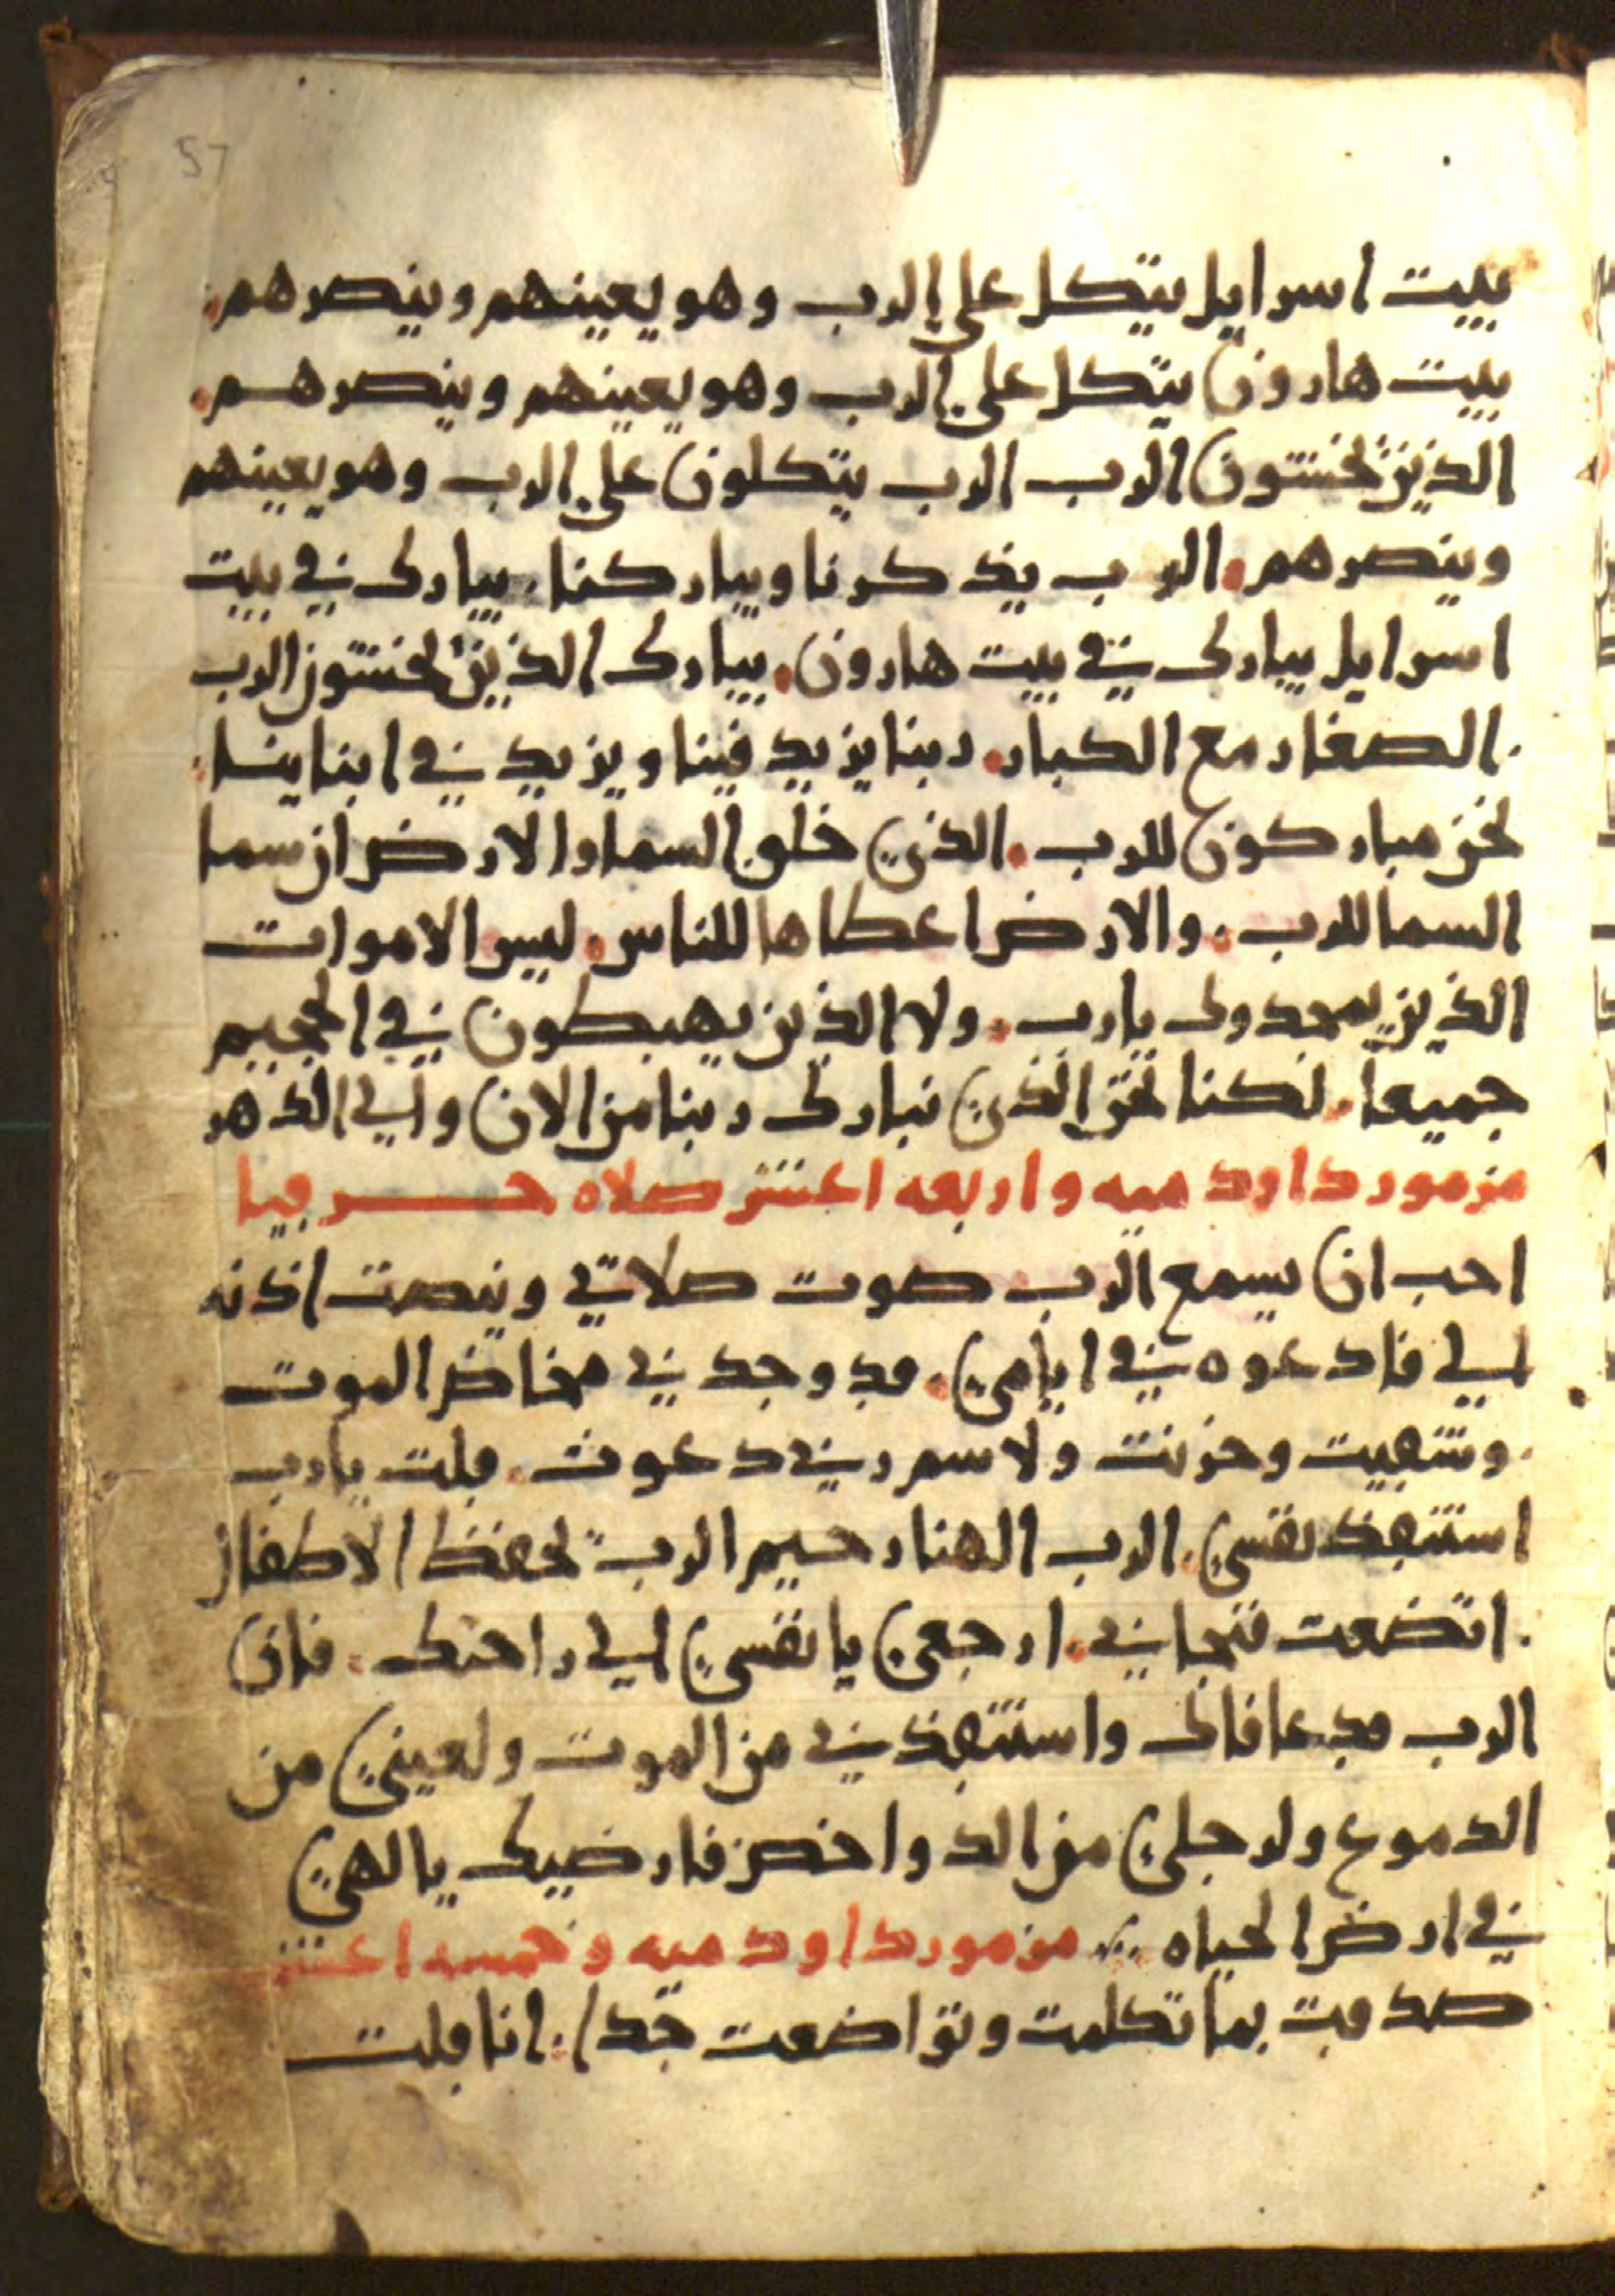 57
بيت اسرايل يتكل على الرب وهو يعينهم وينصرهم.
بيت هارون يتكل على الرب وهو يعينهم وينصرهم.
الذين يخشون الرب الرب يتكلون على الرب وهو يعينهم
وينصرهم. الرب يذكرنا ويباركنا. يبارك في بيت
اسرايل يبارك في بيت هارون. يبارك الذين يخشون الرب
. الصغار مع الكبار. ربنا يزيد فينا ويزيد في ابناينا.
نحن مباركون للرب. الذي خلق السما والارض ان سما
السما للرب. والارض اعطاها للناس. ليس الاموات
الذين يمجدوك يا رب. ولا الذين يهبطون في الجحيم
جميعا. لكنا نحن الذي نبارك ربنا من الان والي الدهر
مزمور داود ميه واربعه اعشر صلاه حزقيا
احب ان يسمع الرب صوت صلاتي وينصت اذنه
الي فادعوه في ايامي. قد وجدني مخاض الموت
. وشقيت وحزنت ولاسم ربي دعوت. قلت يا رب
استنقذ نفسي. الرب الهنا رحيم الرب يحفظ الاطفال
. اتضعت فنجاني. ارجعي يا نفسي الي راحتك. فان
الرب قد عافاك واستنقذني من الموت ولعيني من
الدموع ولرجلي من الدواحض فارضيك يالهي
في ارض الحياه ⁘ مزمور داود ميه وخمسه اعشر
صدقت بما تكلمت وتواضعت جدا. انا قلت